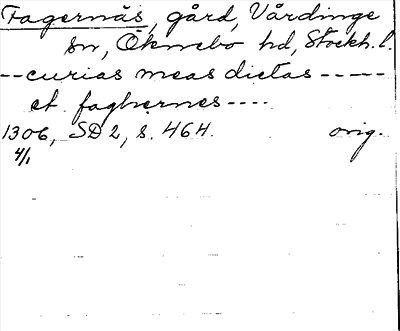 Fagernäs, gård, Vårdinge
sn, Öknebo hd, Stockh. l.
--curias meas dictas-----
et faghernes----
1306, SD 2, s. 464. orig.
4/1